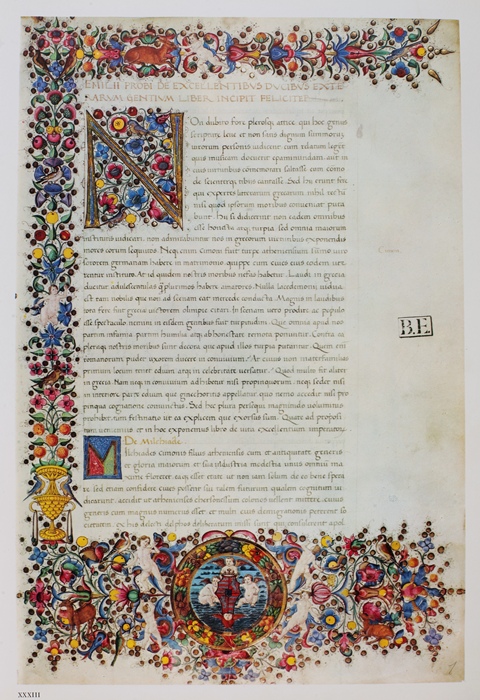 EMILII PROBI DE EXCELLENTIBVS DVCIBVS EXTE
RARVM GENTIVM LIBER INCIPIT FELICITER
NOn dubito fore plerosq; attice qui hoc genus
scripturae leve et non satis dignum summorum
virorum personis iudicent cum relatum legent
quis musicam docuerit epaminundam aut in
eius virtutibus commemorari saltasse eum commo
de scienterq; tibiis cantasse. Sed hi erunt fere
qui expertes litterarum grecarum nihil rectum
nisi quod ipsorum moribus conveniat puta
bunt. Hi si didicerint non eadem omnibus
esse honesta atq; turpia sed omnia maiorum
institutis iudicari, non admirabuntur nos in grecorum virtutibus exponendis
mores eorum sequutos. Neq; enim Cimoni fuit turpe atheniensium summo viro
sororem germanam habere in matrimonio quippe cum cives eius eodem ute
rentur instituto. At id quidem nostris moribus nefas habetur. Laudi in grecia
ducitur adulescentulis quamplurimos habere amatores. Nulla lacedemoni vidua
est tam nobilis que non ad scenam eat mercede conducta. Magnis in laudibus
tota fere fuit grecia victorem olimpie citari. In scenam vero prodire ac populo
esse spectaculo nemini in eisdem gentibus fuit turpitudini. Que omnia apud nos
partim infamia partim humilia atq; ab honestate remota ponuntur. Contra ea
pleraq; nostris moribus sunt decora que apud illos turpia putantur. Quem enim
romanorum pudet uxorem ducere in convivium. Aut cuius non materfamilias
primum locum tenet edium atq; in celebritate versatur. Quod multo fit aliter
in grecia. Nam neq; in convivium adhibetur nisi propinquorum neq; sedet nisi
in interiore parte edium que gynaeconitis appellatur quo nemo accedit nisi pro
pinqua cognatione coniunctus. Sed hic plura persequi magnitudo voluminis
prohibet tum festinatio ut ea explicem que exorsus sum. Quare ad proposi
tum veniemus et in hoc exponemus libro de vita excellentium imperatorum
De Milchiade
Milchiades cimonis filius atheniensis cum et antiquitate generis
et gloria maiorum et sua industria modestia unus omnium ma
xime floreret eaq; esset etate ut non iam solum de eo bene spera
re sed etiam confidere cives possent sui talem futurum qualem cognitum iu
dicarunt accidit ut athenienses chersonessum colonos vellent mittere. cuius
generis cum magnus numerus esset et multi eius demigrationis peterent so
cietatem ex his delecti delphos deliberatum missi sunt qui consulerent apol
B.E
XXXIII